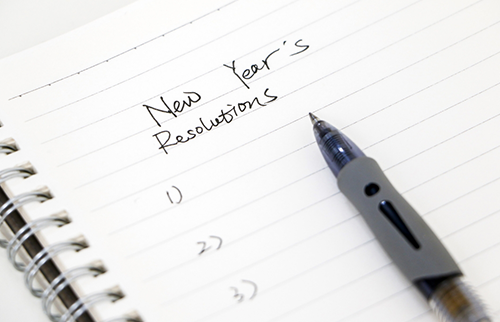 New Year's
Resolutions
1)
2)
3)